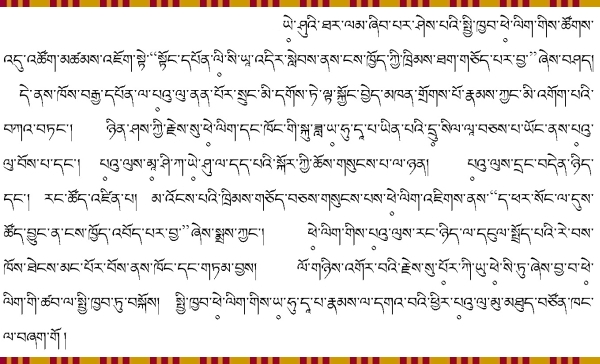 ཡེ་ཤུའི་ཐར་ལམ་ཞིབ་པར་ཤེས་པའི་སྤྱི་ཁྱབ་ཕེ་ལིག་གིས་ཚོགས་
འདུ་འཚོག་མཚམས་འཇོག་སྟེ་“སྟོང་དཔོན་ལི་སི་ཡཱ་འདིར་སླེབས་ནས་ངས་ཁྱོད་ཀྱི་ཁྲིམས་ཐག་གཅོད་པར་བྱ་”ཞེས་བཤད།
དེ་ནས་ཁོས་བརྒྱ་དཔོན་ལ་པའུ་ལུ་ནན་པོར་སྲུང་མི་དགོས་ཏེ་ལྟ་སྐྱོང་བྱེད་མཁན་གྲོགས་པོ་རྣམས་ཀྱང་མི་འགོག་པའི་
བཀའ་བཏང་། ཉིན་ཤས་ཀྱི་རྗེས་སུ་ཕེ་ལིག་དང་ཁོང་གི་སྐུ་ཟླ་ཡ་ཧུ་དཱ་པ་ཡིན་པའི་དྲུ་སིལ་ལཱ་བཅས་པ་ཡོང་ནས་པའུ་
ལུ་བོས་པ་དང་། པའུ་ལུས་མཱ་ཤི་ཀ་ཡེ་ཤུ་ལ་དད་པའི་སྐོར་ཀྱི་ཆོས་གསུངས་པ་ལ་ཉན། པའུ་ལུས་དྲང་བདེན་ཉིད་
དང་། རང་ཚོད་འཛིན་པ། མ་འོངས་པའི་ཁྲིམས་གཅོད་བཅས་གསུངས་པས་ཕེ་ལིག་འཇིགས་ནས་“ད་ཕར་སོང་ལ་དུས་
ཚོད་བྱུང་ན་ངས་ཁྱོད་འབོད་པར་བྱ་”ཞེས་སྨྲས་ཀྱང་། ཕེ་ལིག་གིས་པའུ་ལུས་རང་ཉིད་ལ་དངུལ་སྤྲོད་པའི་རེ་བས་
ཁོས་ཐེངས་མང་པོར་བོས་ནས་ཁོང་དང་གཏམ་བྱས། ལོ་གཉིས་འགོར་བའི་རྗེས་སུ་པོར་ཀི་ཡུ་ཕེ་སི་ཏུ་ཞེས་བྱ་བ་ཕེ་
ལིག་གི་ཚབ་ལ་སྤྱི་ཁྱབ་ཏུ་བསྐོས། སྤྱི་ཁྱབ་ཕེ་ལིག་གིས་ཡ་ཧུ་དཱ་པ་རྣམས་ལ་དགའ་བའི་ཕྱིར་པའུ་ལུ་མུ་མཐུད་བཙོན་ཁང་
ལ་བཞག་གོ །